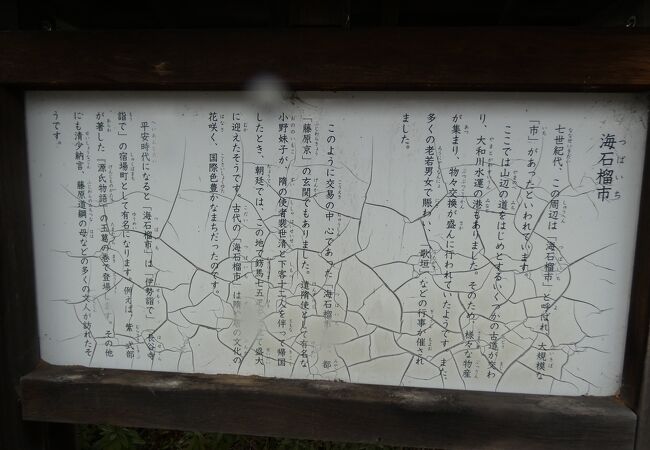 海石榴市
つばいち
七世紀代、この周辺は「海石榴市」と呼ばれ、大規模な
「市」があったといわれています。
ここでは山辺の道をはじめとするいくつかの古道が交わ
り、大和川水運の港もありました。そのため、様々な物産
が集まり、物々交換が盛んに行われていたようです。また、
多くの老若男女で賑わい、「歌垣」などの行事が催され
ました。
このように交易の中心であった「海石榴 都
「藤原京」の玄関でもありました。遣隋使として有名な
小野妹子が、隋の使者裴世清と下客十二人を伴って帰国
したとき、朝廷では、この地で飾馬七五 盛大
に迎えたそうです。古代の「海石榴市」は の文化の
花咲く、国際色豊かなまちだったのです。
平安時代になると「海石榴市」は「伊勢詣で」「長谷寺
詣で」の宿場町として有名になります。例えば、紫式部
が著した『源氏物語』の玉葛の巻で登場 す。その他
にも清少納言、藤原道綱の母などの多くの文人が訪れたそ
うです。